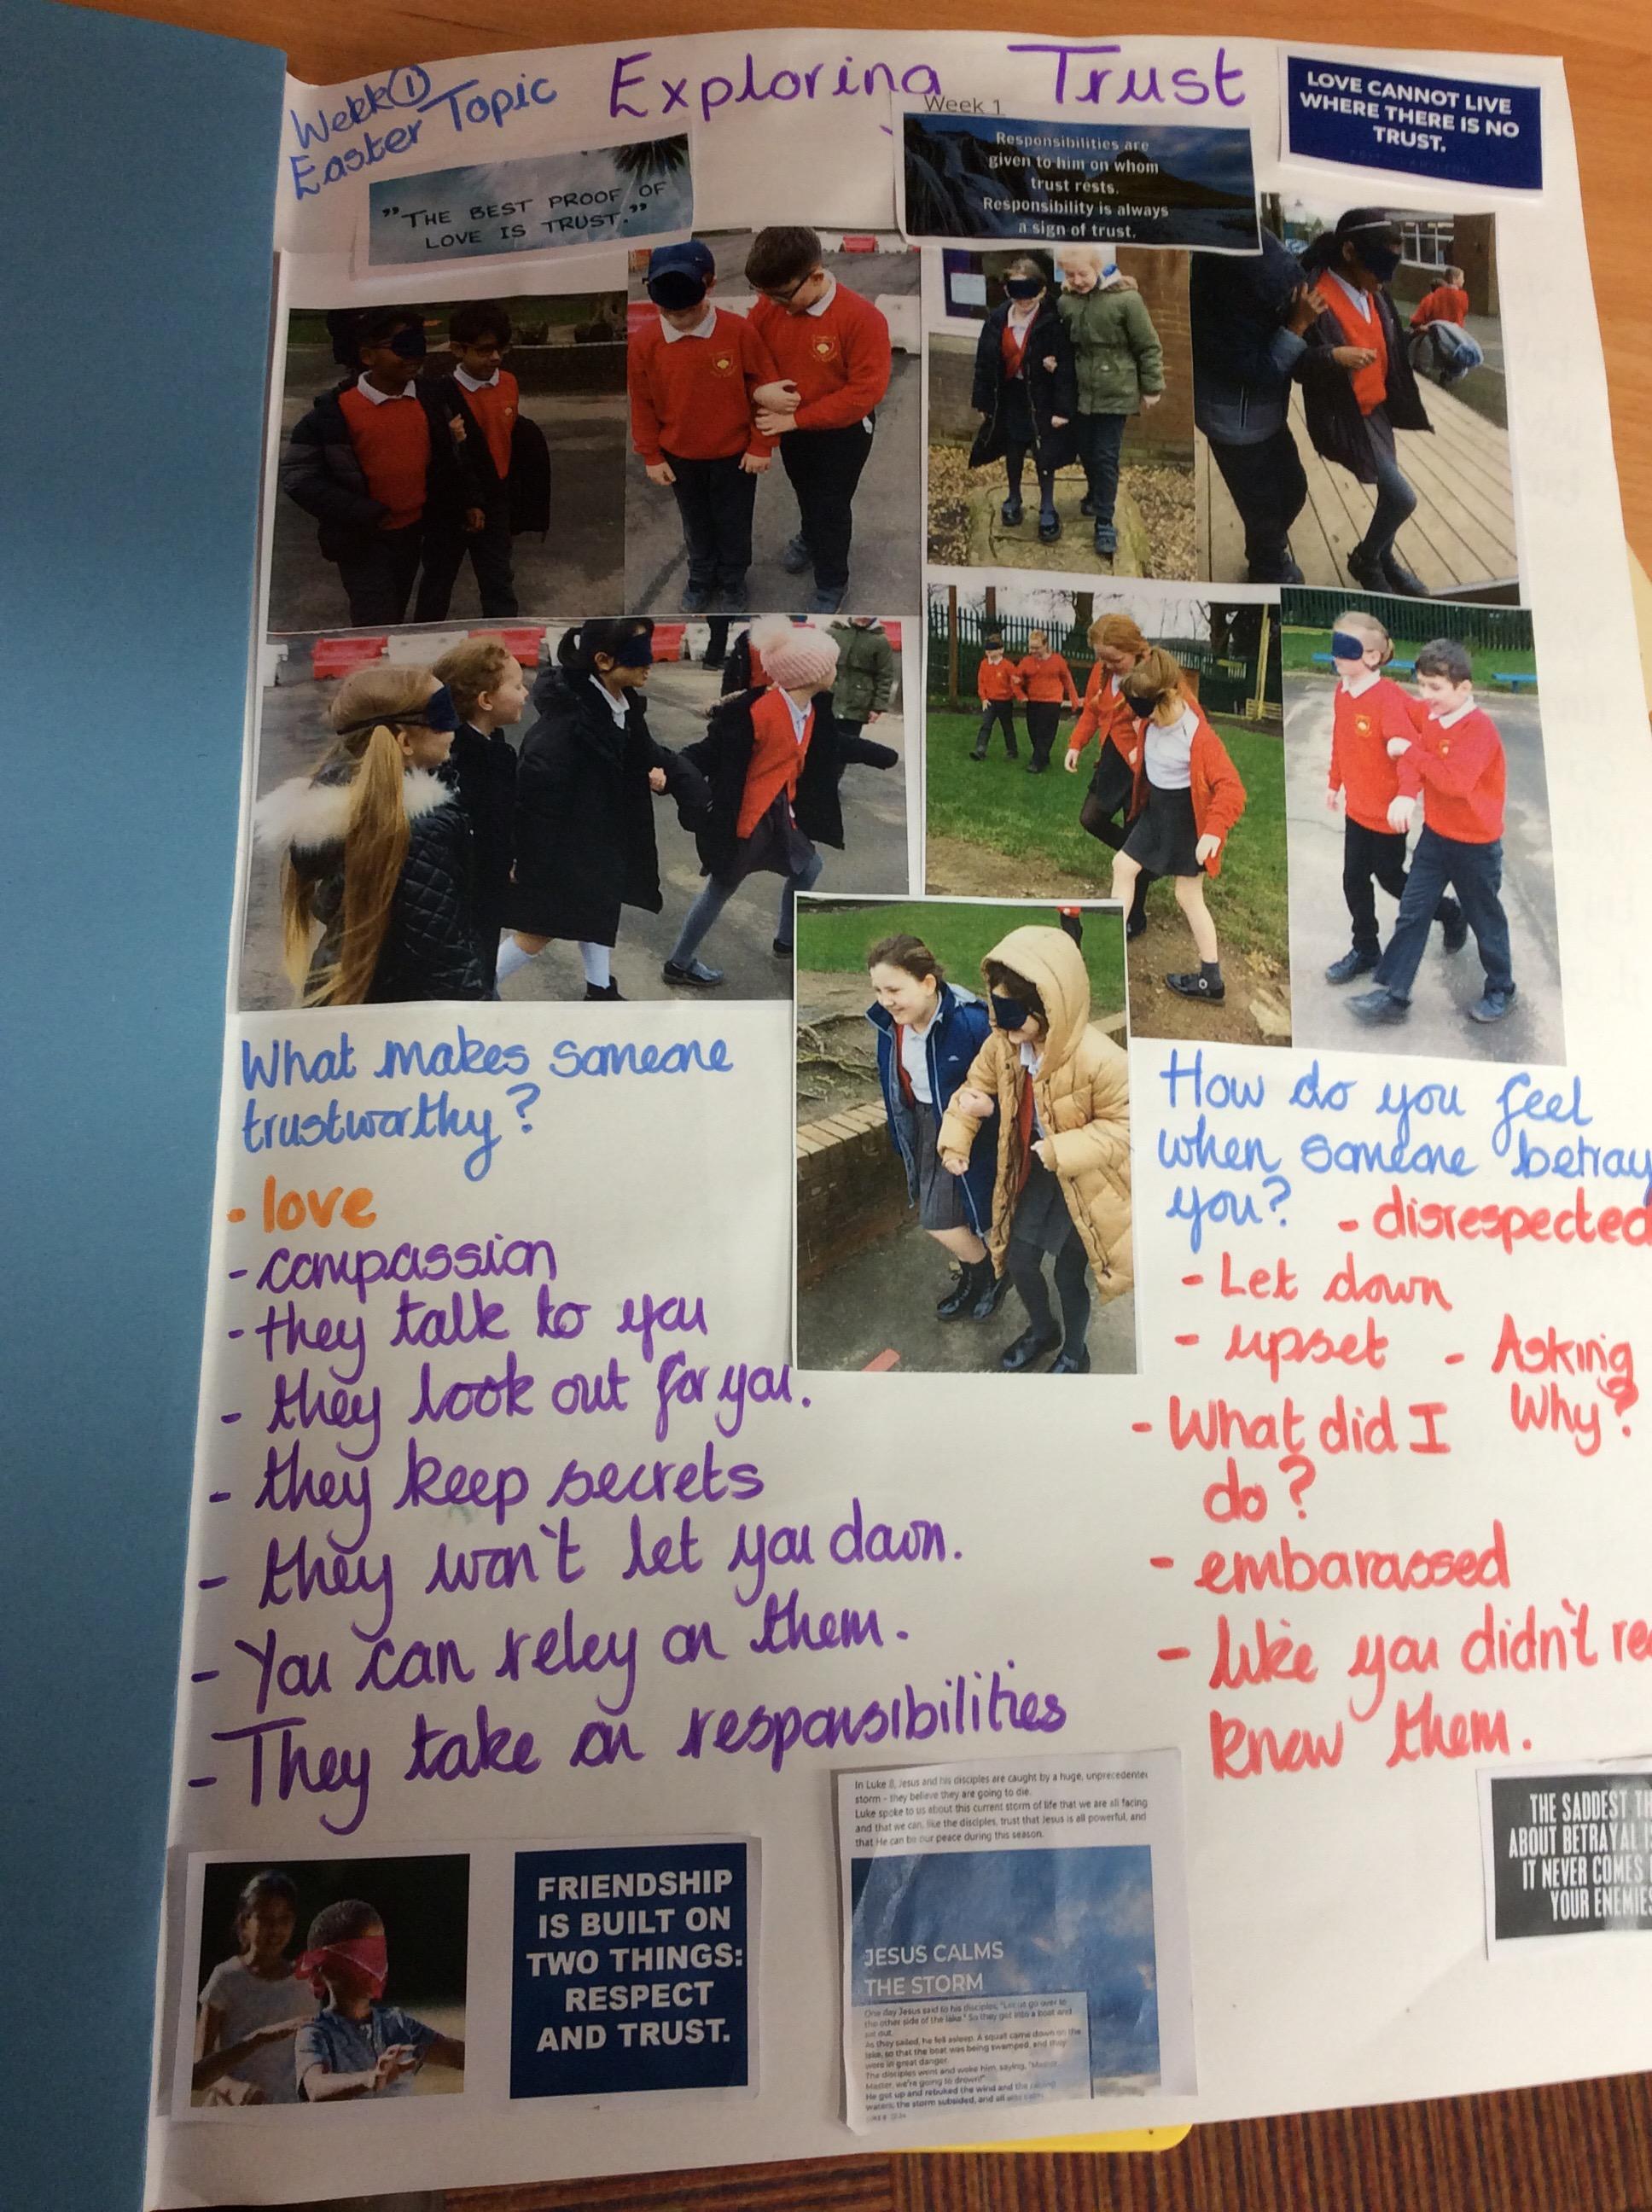 Wekk ①
Easter Topic
Exploring Trust
Week 1
LOVE CANNOT LIVE
WHERE THERE IS NO
TRUST.
"THE BEST PROOF OF
LOVE IS TRUST."
Responsibilities are
given to him on whom
trust rests.
Responsibility is always
a sign of trust.
What makes someone
trustworthy?
- love
- compassion
- they talk to you
- they look out for you.
- they keep secrets
- they won't let you down.
- You can reley on them.
- They take on responsibilities
How do you feel
when someone betray
you? - disrespected
- Let down
- upset - Asking
Why?
- What did I
do?
- embarassed
- like you didn't re
know them.
FRIENDSHIP
IS BUILT ON
TWO THINGS:
RESPECT
AND TRUST.
In Luke 8, Jesus and his disciples are caught by a huge, unprecedente
storm - they believe they are going to die.
Luke spoke to us about this current storm of life that we are all facing
and that we can, like the disciples, trust that Jesus is all powerful, and
that He can be our peace during this season.
JESUS CALMS
THE STORM
One day Jesus said to his disciples, "Let us go over to
the other side of the lake." So they got into a boat and
set out.
As they sailed, he fell asleep. A squall came down on the
lake, so that the boat was being swamped, and they
were in great danger.
The disciples went and woke him, saying, "Master,
Master, we're going to drown!"
He got up and rebuked the wind and the raging
waters; the storm subsided, and all was calm.
THE SADDEST TH
ABOUT BETRAYAL
IT NEVER COMES
YOUR ENEMIES